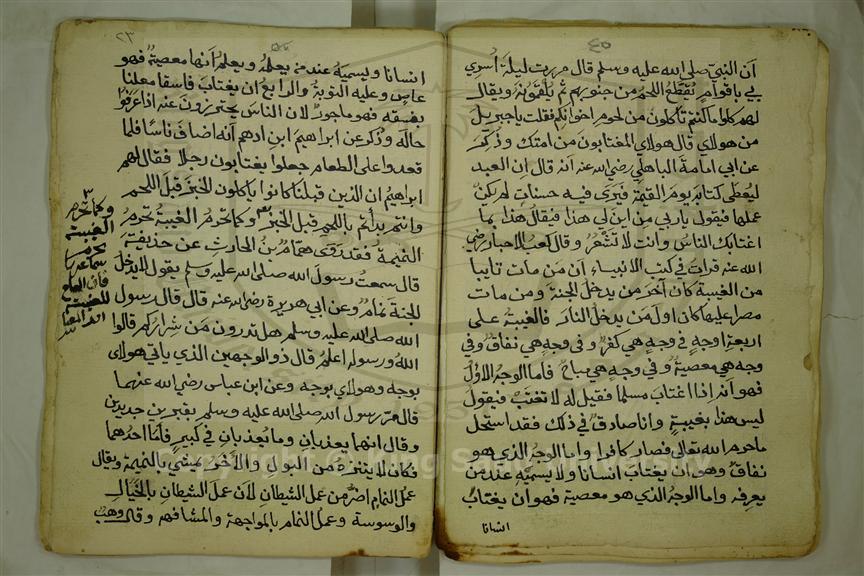 ٤٥
أن النبي صلى الله عليه وسلم قال مررت ليلة أسري
بي باقوام نقطع اللحم من جنوبهم ثم يلقمونه ويقال
لهم كلوا ما كنتم تأكلون من لحوم اخوانكم فقلت يا جبريل
من هولاي قال هولاي المغتابون من امتك وذكر
عن ابي امامة الباهلي رضي الله عنه انه قال ان العبد
ليعطى كتابه يوم القيمة فيرى فيه حسنات لم يكن
عملها فيقول يا ربي من اين لي هذا فيقال هذا بما
اغتابك الناس وانت لا تشعر وقال كعب الاحبار رضي
الله عنه قرات في كتب الانبياء ان من مات تايبا
من الغيبة كان آخر من يدخل الجنة ومن مات
مصرا عليها كان اول من يدخل النار فالغيبة على
اربعة اوجه في وجه هي كفر وفى وجه هي نفاق وفي
وجه هي معصية وفي وجه هي مباح فاما الوجه الاول
فهو انه اذا اغتاب مسلما فقيل له لا تغتب فيقول
ليس هذا بغيبة وانا صادق في ذلك فقد استحل
ما حرم الله تعالى فصار كافرا واما الوجه الذي هو
نفاق وهو ان يغتاب انسانا ولا يسميه عند من
يعرفه واما الوجه الذي هو معصية فهو ان يغتاب
انسانا
٢٣
انسانا ويسميه عند من يعلمه ويعلم أنها معصية فهو
عاص وعليه التوبة والرابع ان يغتاب فاسقا معلنا
بفسقه فهو ماجور لان الناس يحترزون عنه اذا عرفوا
حاله وذكر عن ابراهيم ابن ادهم أنه اضاف ناسا فلما
قعدوا على الطعام جعلوا يغتابون رجلا فقال لهم
ابراهيم ان الذين قبلنا كانوا ياكلون الخبز قبل اللحم
وانتم بدأتم باللحم قبل الخبز وكما تحرم الغيبة تحرم
النميمة فقد روى همام بن الحارث عن حذيفة
قال سمعت رسول الله صلى الله عليه وسلم يقول لا يدخل
الجنة نمام وعن ابي هريرة رضي الله عنه قال قال رسول
الله صلى الله عليه وسلم هل تدرون من شراركم قالوا
الله ورسوله اعلم قال ذو الوجهين الذي ياتي هولاى
بوجه وهولاي بوجه وعن ابن عباس رضي الله عنهما
قال مر رسول الله صلى الله عليه وسلم بقبرين جديدين
وقال انهما يعذبان وما يعذبان في كبير فاما احدهما
فكان لا يتنزه من البول والاخر يمشي بالنميمة ويقال
عمل النمام اضر من عمل الشيطان لان عمل الشيطان بالخيال
والوسوسة وعمل النمام بالمواجهة والمشافهه وقال وهب
وكما تحرم
الغيبة
يحرم
سماعها
فان
للغيبة
Copyright © King Saud University